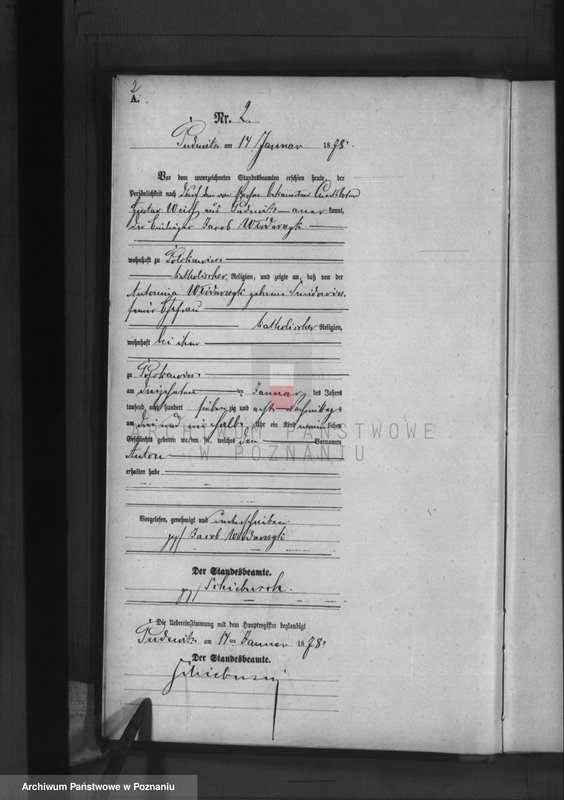 2
A.
Nr. 2.
Pudewitz am 14 Januar 1878
Vor dem unterzeichneten Standesbeamten erschien heute, der
Persönlichkeit nach durch den von Person bekannten
Gustav aus Pudewitz anerkannt,
der Jacob Włodarczyk
wohnhaft zu
katholischer Religion, und zeigte an, daß von der
Antonina Włodarczyk geborene
seiner Ehefrau
katholischer Religion,
wohnhaft bei ihm
zu
am dreizehnten ten Januar des Jahres
tausend acht hundert siebenzig und acht Nachmittags
um drei und einhalb Uhr ein Kind männlichen
Geschlechts geboren worden sei, welches den Vornamen
Anton
erhalten habe
Vorgelesen, genehmigt und unterschrieben
gez. Jacob Włodarczyk
Der Standesbeamte.
gez.
Die Uebereinstimmung mit dem Hauptregister beglaubigt
Pudewitz am 14ten Januar 1878
Der Standesbeamte.
ARCHIWUM PAŃSTWOWE
W POZNANIU
Archiwum Państwowe w Poznaniu